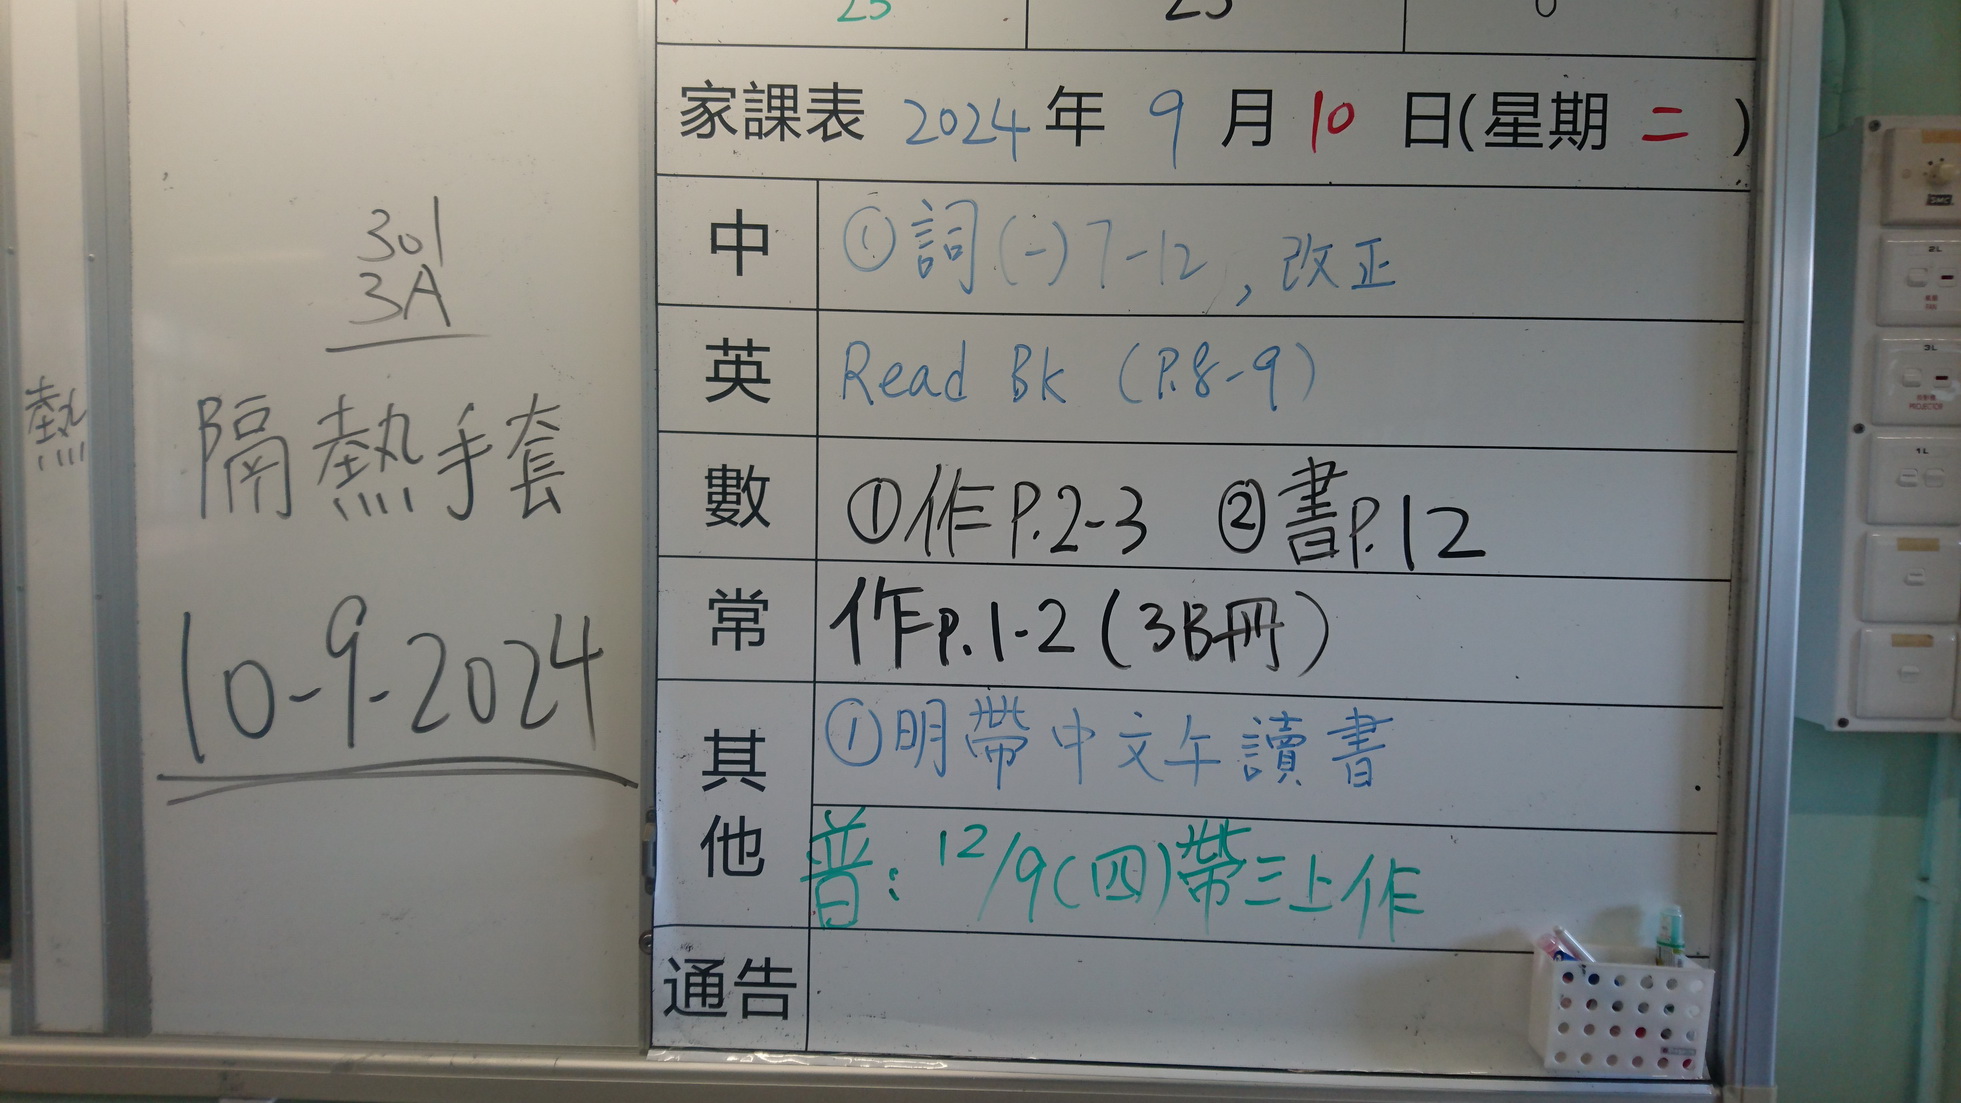 熱
301
3A
隔熱手套
10-9-2024
家課表 2024 年 9 月 10 日(星期 二 )
中 ①詞(一)7-12, 改正
英 Read Bk (P.8-9)
數 ①作P.2-3 ②書P.12
常 作P.1-2(3B冊)
其他 ①明帶中文午讀書
普: 12/9(四)帶三上作
通告
2L
3L
PROJECTOR
1L